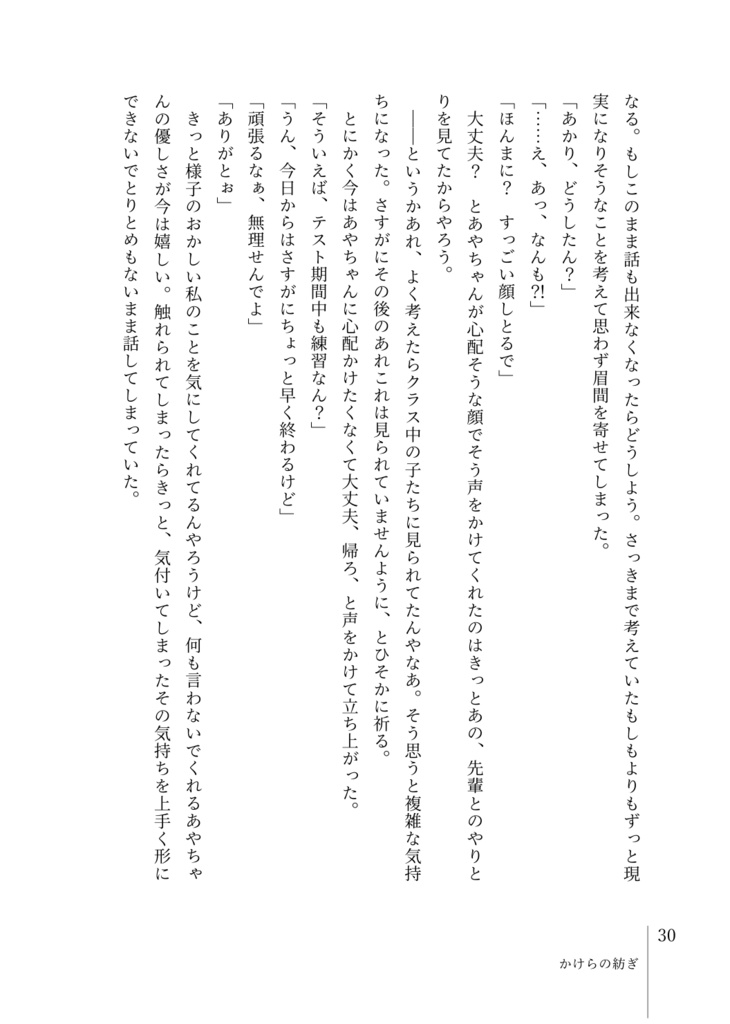 なる。もしこのまま話も出来なくなったらどうしよう。さっきまで考えていたもしもよりもずっと現
実になりそうなことを考えて思わず眉間を寄せてしまった。
「あかり、どうしたん？」
「……え、あっ、なんも⁈」
「ほんまに？　すっごい顔しとるで」
　大丈夫？　とあやちゃんが心配そうな顔でそう声をかけてくれたのはきっとあの、先輩とのやりと
りを見てたからやろう。
　――というかあれ、よく考えたらクラス中の子たちに見られてたんやなあ。そう思うと複雑な気持
ちになった。さすがにその後のあれこれは見られていませんように、とひそかに祈る。
　とにかく今はあやちゃんに心配かけたくなくて大丈夫、帰ろ、と声をかけて立ち上がった。
「そういえば、テスト期間中も練習なん？」
「うん、今日からはさすがにちょっと早く終わるけど」
「頑張るなぁ、無理せんでよ」
「ありがとぉ」
　きっと様子のおかしい私のことを気にしてくれてるんやろうけど、何も言わないでくれるあやちゃ
んの優しさが今は嬉しい。触れられてしまったらきっと、気付いてしまったその気持ちを上手く形に
できないでとりとめもないまま話してしまっていた。
30
かけらの紡ぎ